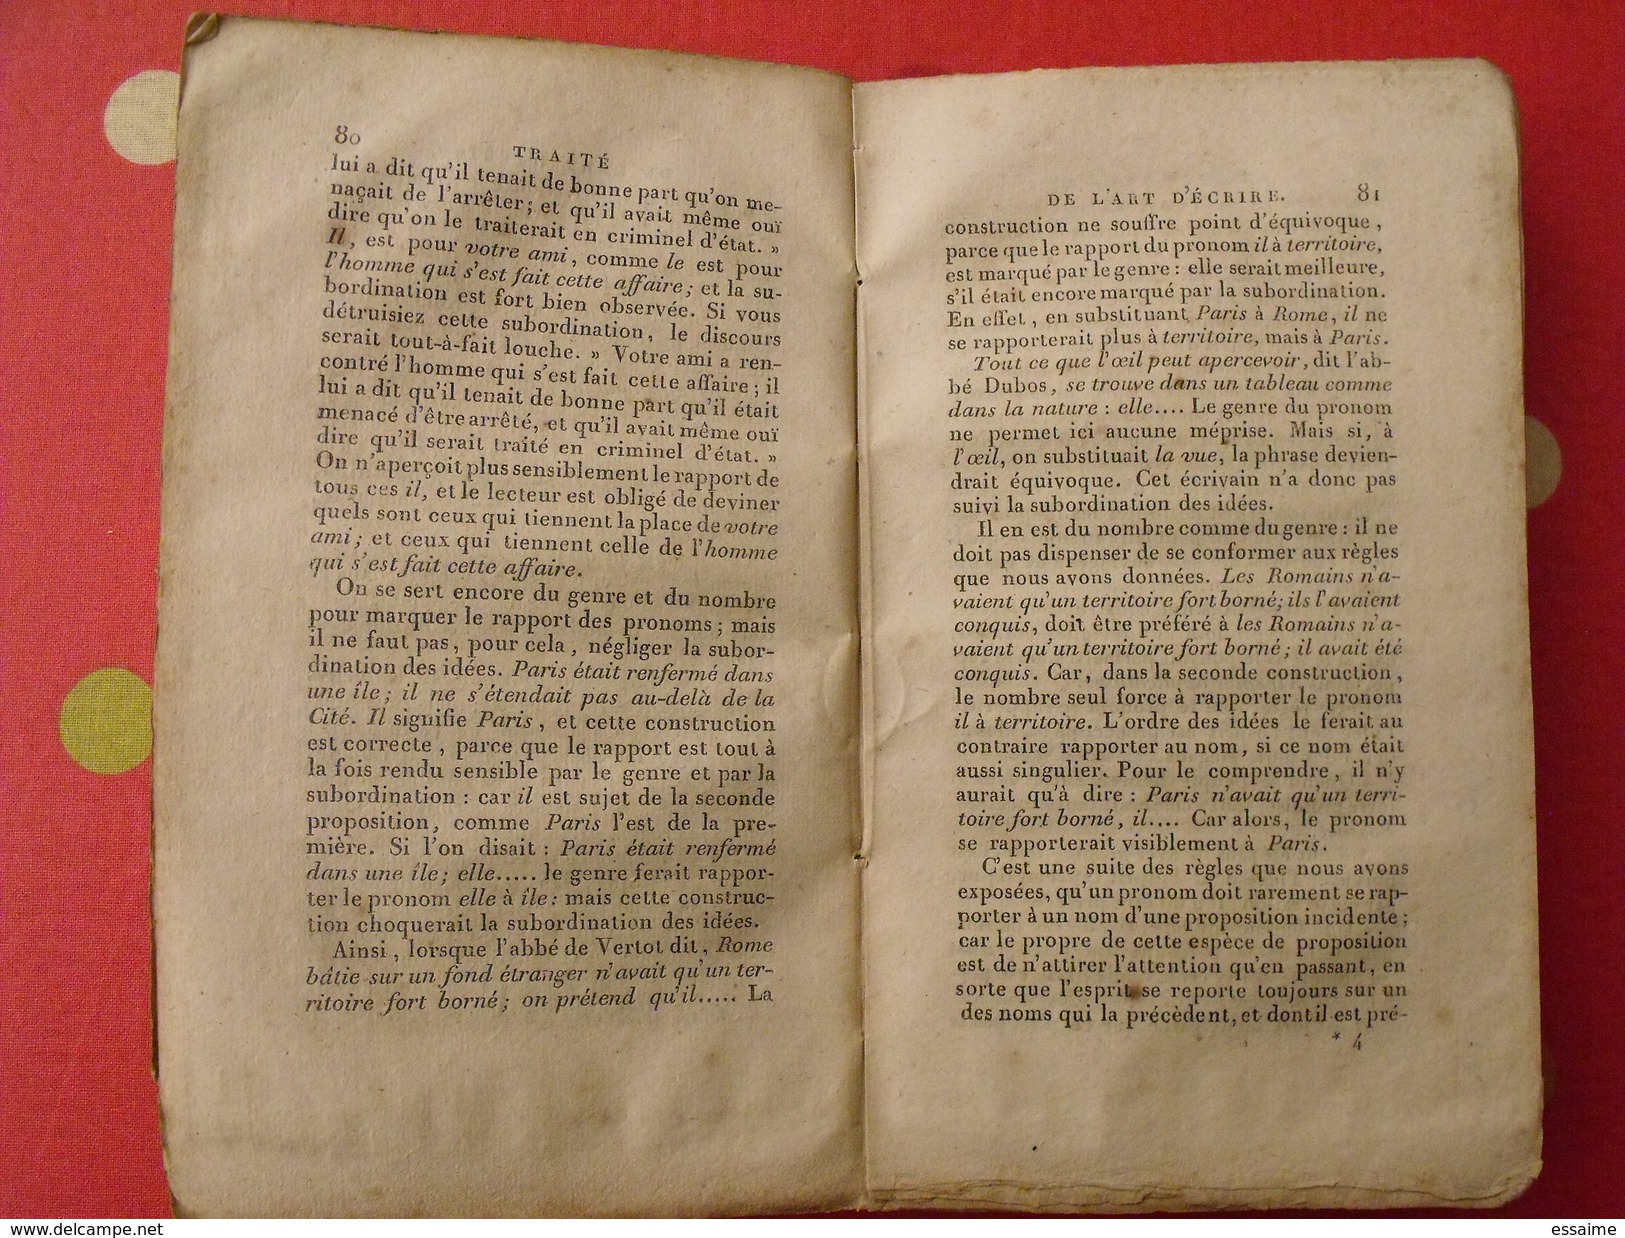 80
TRAITÉ
lui a dit qu'il tenait de bonne part qu'on me-
naçait de l'arrêter; et qu'il avait même ouï
dire qu'on le traiterait en criminel d'état. »
Il, est pour votre ami, comme le est pour
l'homme qui s'est fait cette affaire; et la su-
bordination est fort bien observée. Si vous
détruisiez cette subordination, le discours
serait tout-à-fait louche. » Votre ami a ren-
contré l'homme qui s'est fait cette affaire; il
lui a dit qu'il tenait de bonne part qu'il était
menacé d'être arrêté, et qu'il avait même ouï
dire qu'il serait traité en criminel d'état. »
On n'aperçoit plus sensiblement le rapport de
tous ces il, et le lecteur est obligé de deviner
quels sont ceux qui tiennent la place de votre
ami; et ceux qui tiennent celle de l'homme
qui s'est fait cette affaire.
On se sert encore du genre et du nombre
pour marquer le rapport des pronoms; mais
il ne faut pas, pour cela, négliger la subor-
dination des idées. Paris était renfermé dans
une île; il ne s'étendait pas au-delà de la
Cité. Il signifie Paris, et cette construction
est correcte, parce que le rapport est tout à
la fois rendu sensible par le genre et par la
subordination : car il est sujet de la seconde
proposition, comme Paris l'est de la pre-
mière. Si l'on disait : Paris était renfermé
dans une île; elle..... le genre ferait rappor-
ter le pronom elle à île: mais cette construc-
tion choquerait la subordination des idées.
Ainsi, lorsque l'abbé de Vertot dit, Rome
bâtie sur un fond étranger n'avait qu'un ter-
ritoire fort borné; on prétend qu'il..... La
DE L'ART D'ÉCRIRE. 81
construction ne souffre point d'équivoque,
parce que le rapport du pronom il à territoire,
est marqué par le genre : elle serait meilleure,
s'il était encore marqué par la subordination.
En effet, en substituant Paris à Rome, il ne
se rapporterait plus à territoire, mais à Paris.
Tout ce que l'œil peut apercevoir, dit l'ab-
bé Dubos, se trouve dans un tableau comme
dans la nature : elle.... Le genre du pronom
ne permet ici aucune méprise. Mais si, à
l'œil, on substituait la vue, la phrase devien-
drait équivoque. Cet écrivain n'a donc pas
suivi la subordination des idées.
Il en est du nombre comme du genre : il ne
doit pas dispenser de se conformer aux règles
que nous avons données. Les Romains n'a-
vaient qu'un territoire fort borné; ils l'avaient
conquis, doit être préféré à les Romains n'a-
vaient qu'un territoire fort borné; il avait été
conquis. Car, dans la seconde construction,
le nombre seul force à rapporter le pronom
il à territoire. L'ordre des idées le ferait au
contraire rapporter au nom, si ce nom était
aussi singulier. Pour le comprendre, il n'y
aurait qu'à dire : Paris n'avait qu'un terri-
toire fort borné, il.... Car alors, le pronom
se rapporterait visiblement à Paris.
C'est une suite des règles que nous avons
exposées, qu'un pronom doit rarement se rap-
porter à un nom d'une proposition incidente;
car le propre de cette espèce de proposition
est de n'attirer l'attention qu'en passant, en
sorte que l'esprit se reporte toujours sur un
des noms qui la précèdent, et dont il est pré-
* 4
www.delcampe.net
essaime